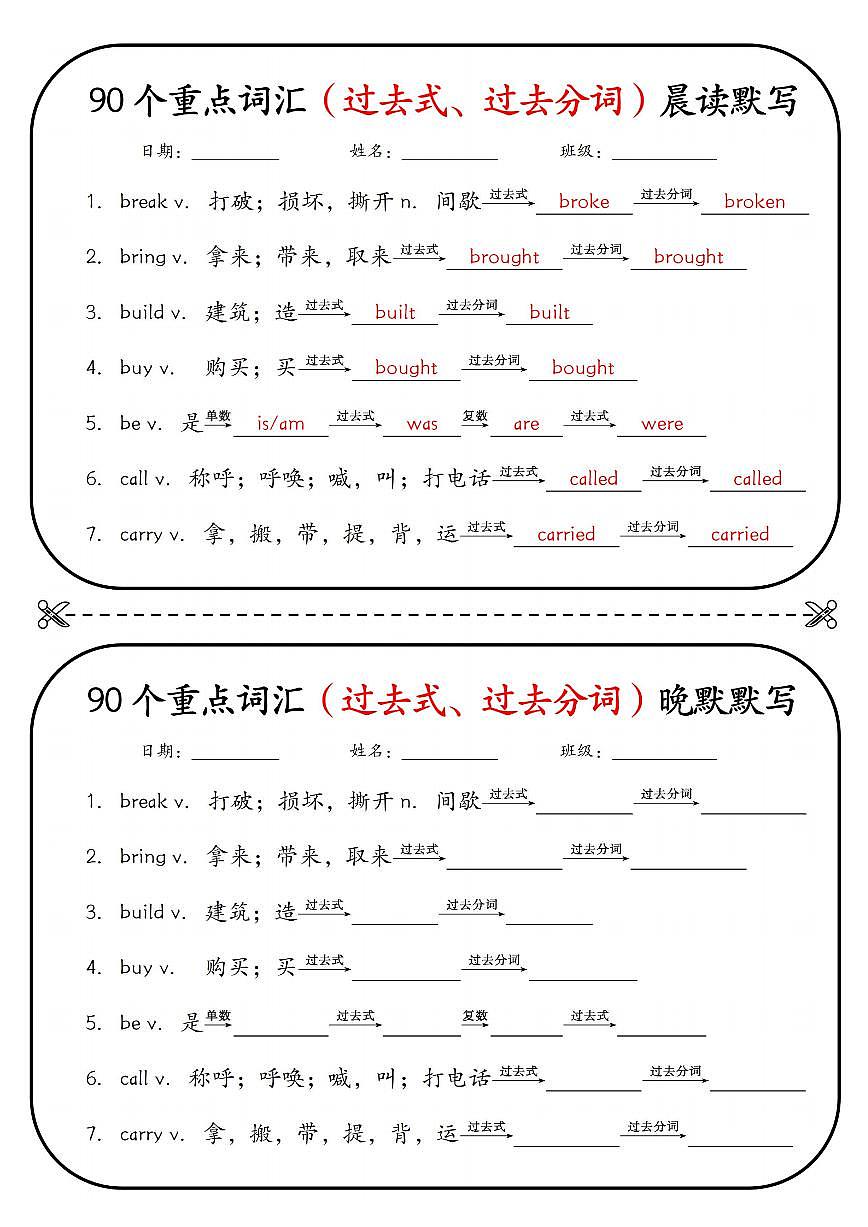 90 个重点词汇（过去式、过去分词）晨读默写
日期：________ 姓名：________ 班级：________
1. break v. 打破；损坏，撕开 n. 间歇 过去式 broke 过去分词 broken
2. bring v. 拿来；带来，取来 过去式 brought 过去分词 brought
3. build v. 建筑；造 过去式 built 过去分词 built
4. buy v. 购买；买 过去式 bought 过去分词 bought
5. be v. 是 单数 is/am 过去式 was 复数 are 过去式 were
6. call v. 称呼；呼唤；喊，叫；打电话 过去式 called 过去分词 called
7. carry v. 拿，搬，带，提，背，运 过去式 carried 过去分词 carried
90 个重点词汇（过去式、过去分词）晚默默写
日期：________ 姓名：________ 班级：________
1. break v. 打破；损坏，撕开 n. 间歇 过去式 ________ 过去分词 ________
2. bring v. 拿来；带来，取来 过去式 ________ 过去分词 ________
3. build v. 建筑；造 过去式 ________ 过去分词 ________
4. buy v. 购买；买 过去式 ________ 过去分词 ________
5. be v. 是 单数 ________ 过去式 ________ 复数 ________ 过去式 ________
6. call v. 称呼；呼唤；喊，叫；打电话 过去式 ________ 过去分词 ________
7. carry v. 拿，搬，带，提，背，运 过去式 ________ 过去分词 ________